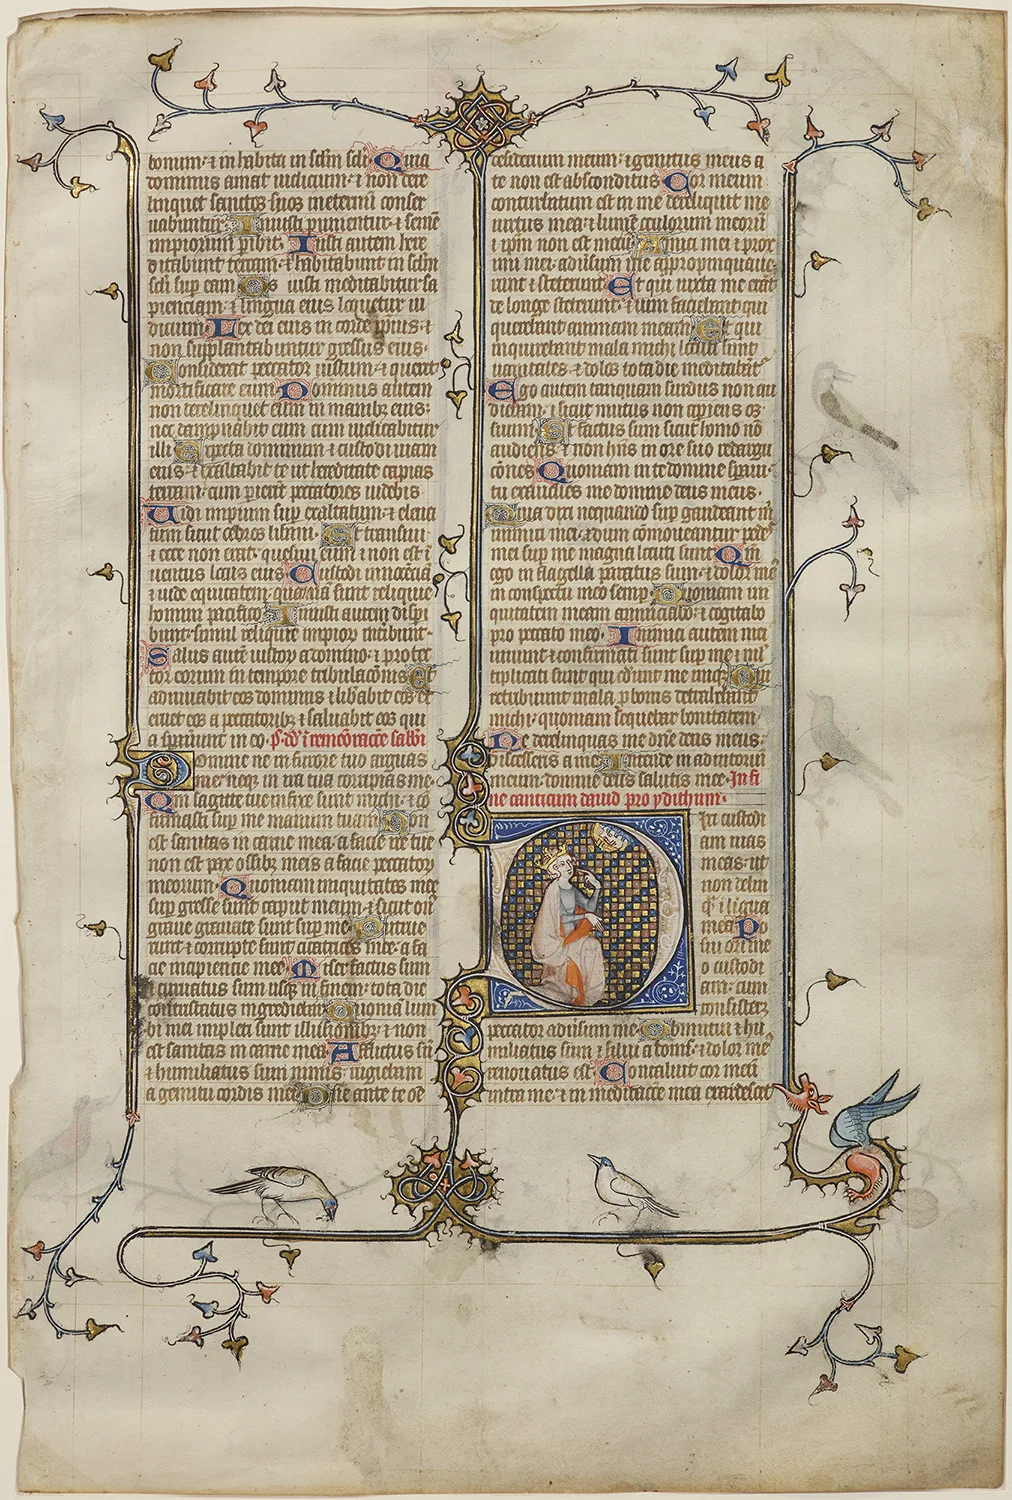 bonum · et in habita in sclm scli Quia
dominus amat iudicium · et non dere
linquet sanctos suos in eternum conser
uabuntur · Iniusti punientur · et semē
impiorum pibit · Iusti autem here
ditabunt terram · et habitabunt in sclm
scli sup eam Os iusti meditabitur sa
pienciam · et lingua eius loquetur iu
dicium · Lex dei eius in corde ipsius · et
non supplantabuntur gressus eius ·
Considerat peccator iustum · et querit
mortificare eum · Dominus autem
non derelinquet eum in manibz eius :
nec dampnabit eum cum iudicabitur
illi Expecta dominum et custodi uiam
eius · et exaltabit te ut hereditate capias
terram · cum pierīt peccatores uidebis
Uidi impium sup exaltatum · et eleua
tum sicut cedros libani · Et transiui
et ecce non erat · quesiui eum et non est ī
uentus locus eius Custodi innocēciā
et uide equitatem · quoniā sunt reliquie
homini pacifico Iniusti autem dispi
bunt · simul reliquie impior intibunt ·
Salus autē iustor a domino · et protec
tor eorum in tempore tribulacōnis Et
adiuuabit eos dominus et libabit eos et
eruet eos a peccatoribz et saluabit eos qui
a sperauerunt in eo · ps dd i remēoraciōe sabbi
Domine ne in furore tuo arguas
me · neqz in ira tua corripias me ·
Qm sagitte tue infixe sunt michi · et cō
firmasti sup me manum tuam Non
est sanitas in carne mea · a facie ire tue
non est pax ossibz meis a facie peccator
meorum · Quoniam iniquitates mee
sup gresse sunt caput meum · et sicut on
graue grauate sunt sup me · Putrue
runt et corrupte sunt cicatrices mee · a fa
cie insipiencie mee Miser factus sum
et curuatus sum usqz in finem · tota die
contristatus ingrediebar Quoniam lum
bi mei impleti sunt illusionibz · et non
est sanitas in carne mea · Afflictus sū
et humiliatus sum nimis · rugiebam
a gemitu cordis mei Dne ante te oē
desiderium meum · et gemitus meus a
te non est absconditus Cor meum
conturbatum est in me dereliquit me
uirtus mea · et lumē oculorum meorū
et ipm non est mecū Amici mei et prox
imi mei · aduersum me appropinquaue
runt et steterunt Et qui iuxta me erāt
de longe steterunt · et uim faciebant qui
querebant animam meam Et qui
inquirebant mala michi locuti sunt
uanitates · et dolos tota die meditabāt
Ego autem tanquam surdus non au
diebam · et sicut mutus non apiens os
suum Et factus sum sicut homo nō
audiens · et non hns in ore suo redargu
cōnes Quoniam in te domine spaui ·
tu exaudies me domine deus meus ·
Quia dixi nequando sup gaudeant m
inimici mei · et dum comoueantur pedes
mei sup me magna locuti sunt Qm
ego in flagella paratus sum · et dolor me
in conspectu meo semp Quoniam in
iquitatem meam annuciabo · et cogitabo
pro peccato meo · Inimici autem mei
uiuunt et confirmati sunt sup me et ml
tiplicati sunt qui oderunt me inique Qui
retribuunt mala p bonis detrahebant
michi · quoniam sequebar bonitatem ·
Ne derelinquas me dne deus meus ·
discesseris a me Intende in adiutoriū
meum · domine deus salutis mee · In fi
ne canticum dauid pro ydithum ·
Dixi custodi
am uias
meas · ut
non delin
qm ī ligua
mea Po
sui ori me
o custodi
am · cum
consisterz
peccator aduersum me Obmutui et hu
miliatus sum et silui a bonis · et dolor me
renouatus est Concaluit cor meū
intra me · et in meditacōe mea exardescet